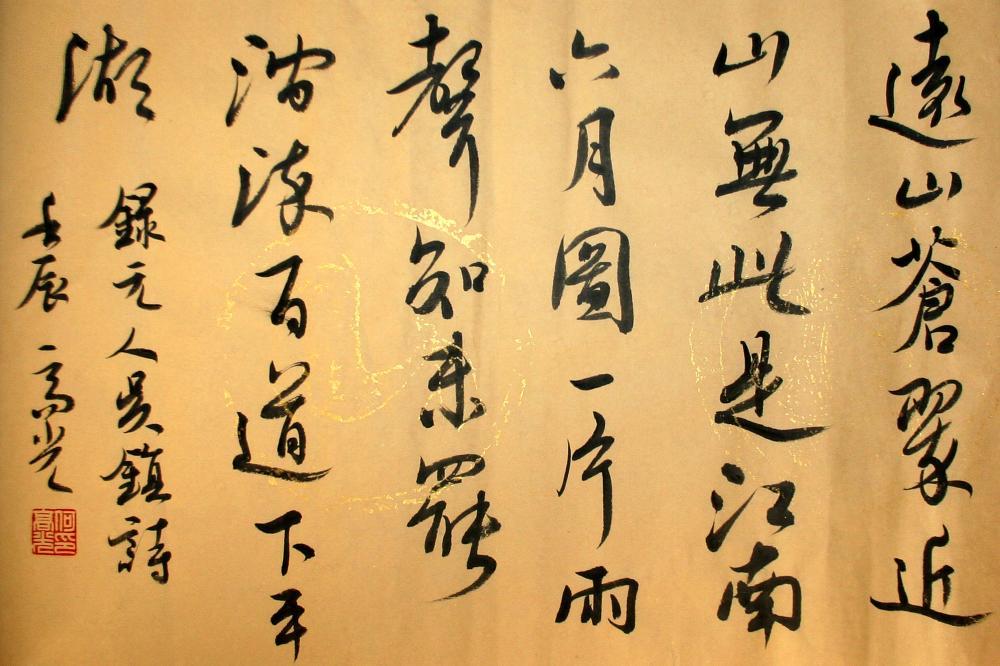 遠山蒼翠近
山無此是江南
六月圖一片雨
聲知未罷
澗流百道下平
湖
錄元人吳鎮詩
壬辰 高光
何印高光